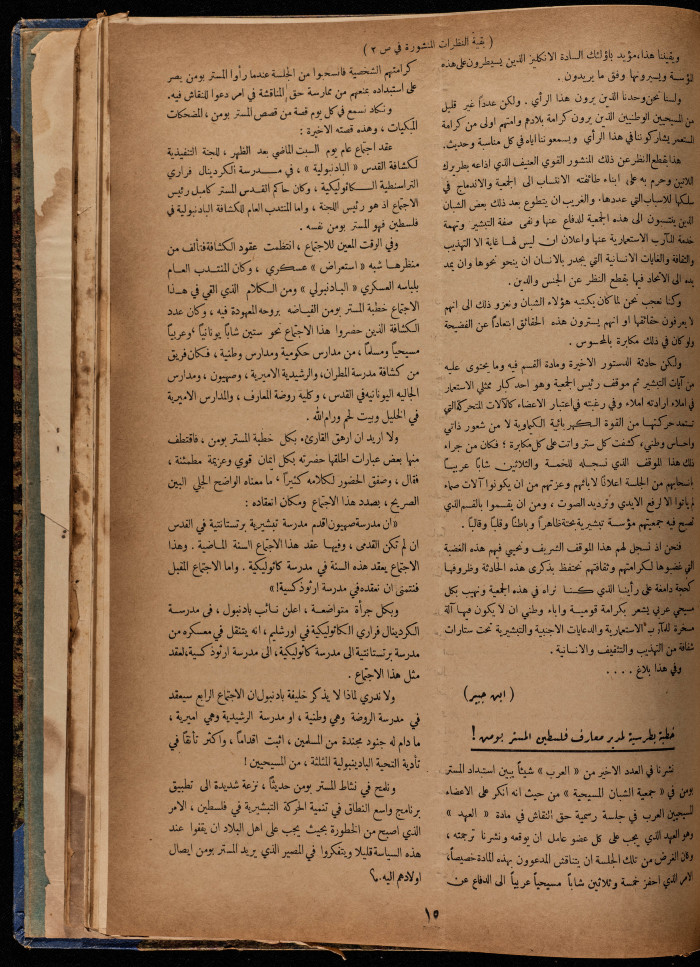 ( بقية النظرات المنشورة في ص ٢ )
ويقيدنا هذا، مؤيد باؤلئك السادة الانكليز الذين يسيطرون على هذه
المؤسسة ويسيرونها وفق ما يريدون .
ولسنا نحن وحدنا الذين يرون هذا الرأي . ولكن عدداً غير قليل
من المسيحيين الوطنيين الذين يرون كرامة بلادهم وامتهم اولى من كرامة
المستعمر يشاركوننا في هذا الرأي ويسمعوننا اياه في كل مناسبة وحديث.
هذا بقطع النظر عن ذلك المنشور القوي العنيف الذي اذاعه بطريرك
اللاتين وحرم به على ابناء طائفته الانتساب الى الجمعية والاندماج في
سلكها للاسباب التي عددها. والغريب ان يتطوع بعد ذلك بعض الشبان
الذين ينتسبون الى هذه الجمعية للدفاع عنها ونفي صفة التبشير وتهمة
خدمة المآرب الاستعمارية عنها واعلان ان ليس لها غاية الا التهذيب
والثقافة والغايات الانسانية التي يجدر بالانسان ان ينحو نحوها وان يمد
يده الى الاتحاد فيها بقطع النظر عن الجنس والدين.
وكنا نعجب نحن لما كان يكتبه هؤلاء الشبان ونعزو ذلك الى انهم
لا يعرفون حقائقها او انهم يسترون هذه الحقائق ابتعاداً عن الفضيحة
ولو كان في ذلك مكابرة بالمحسوس .
ولكن حادثة الدستور الاخيرة ومادة القسم فيه وما يحتوى عليه
من آيات التبشير ثم موقف رئيس الجمعية وهو احد كبار ممثلي الاستعمار
في املاء ارادته املاء وفي رغبته في اعتبار الاعضاء كالآلات المتحركة التي
تستمد حركتها من القوة الكهربائية الكيماوية لا من شعور ذاتي
واحساس وطنيء كشفت كل ستر واتت على كل مكابرة ! فكان من جراء
ذلك هذا الموقف الذي نسجله للخمسة والثلاثين شاباً عربياً
بانسحابهم من الجلسة اعلاناً لابائهم وعزتهم من ان يكونوا آلات صماء
لم يأتوا الا لرفع الايدي وترديد الصوت ، ومن ان يقسموا بالقسم الذي
تصبح فيه جمعيتهم مؤسسة تبشيرية بحتة ظاهراً وباطناً وقلباً وقالباً .
فنحن اذ نسجل لهم هذا الموقف الشريف ونحيي فيهم هذه الغضبة
التي غضبوها لكرامتهم وثقافتهم نحتفظ بذكرى هذه الحادثة وظروفها
كحجة دامغة على رأينا الذي كنا نراه في هذه الجمعية ونهيب بكل
مسيحي عربي يشعر بكرامة قومية واباء وطني ان لا يكون فيها آلة
مسخرة للمآرب الاستعمارية والدعايات الاجنبية والتبشيرية تحت ستارات
شفافة من التهذيب والتثقيف والانسانية .
وفي هذا بلاغ . . . .
( ابن جبير )
خطبة بطرسية لمدير معارف فلسطين المستر بومن !
نشرنا في العدد الاخير من « العرب » شيئاً يبين استبداد المستر
بومن في « جمعية الشبان المسيحية » من حيث انه انكر على الاعضاء
المسيحيين العرب في جلسة رسمية حق النقاش في مادة « العهد »
وهو العهد الذي يجب على كل عضو عامل ان يوقعه ونشرنا ترجمته ،
وكان الغرض من تلك الجلسة ان يتناقش المدعوون بهذه المادة خصيصاً،
الامر الذي احفز خمسة وثلاثين شاباً مسيحياً عربياً الى الدفاع عن
كرامتهم الشخصية فانسحبوا من الجلسة عندما رأوا المستر بومن يصر
على استبداده بمنعهم من ممارسة حق المناقشة في امر دعوا للنقاش فيه.
ونكاد نسمع في كل يوم قصة من قصص المستر بومن ، المضحكات
المبكيات ، وهذه قصته الاخيرة :
عقد اجتماع عام يوم السبت الماضي بعد الظهر ، للجنة التنفيذية
لكشافة القدس « البادنبولية » ، في مدرسة الكردينال فراري
التراسنطية الكاثوليكية ، وكان حاكم القدس المستر كامل رئيس
الاجتماع اذ هو رئيس اللجنة ، واما المنتدب العام للكشافة البادنبولية في
فلسطين فهو المستر بومن نفسه .
وفي الوقت المعين للاجتماع ، انتظمت عقود الكشافة فتألف من
منظرها شبه « استعراض » عسكري ، وكان المنتدب العام
بلباسه العسكري « البادنبولي » ومن الكلام الذي القي في هذا
الاجتماع خطبة المستر بومن الفياضة بروحه المعهودة فيه ، وكان عدد
الكشافة الذين حضروا هذا الاجتماع نحو ستين شاباً يونانياً وعربياً
مسيحياً ومسلماً ، من مدارس حكومية ومدارس وطنية ، فكان فريق
من كشافة مدرسة المطران، والرشيدية الاميرية ، وصهيون ، ومدارس
الجاليه اليونانيه في القدس ، وكلية روضة المعارف ، والمدارس الاميرية
في الخليل وبيت لحم ورام الله .
ولا اريد ان ارهق القارىء بكل خطبة المستر بومن ، فاقتطف
منها بعض عبارات اطلقها حضرته بكل ايمان قوي وعزيمة مطمئنة ،
فقال ، وصفق الحضور لكلامه كثيراً ، ما معناه الواضح الجلي البين
الصريح ، بصدد هذا الاجتماع ومكان انعقاده :
« ان مدرسة صهيون اقدم مدرسة تبشيرية برتستانتية في القدس
ان لم تكن القدمى ، وفيها عقد هذا الاجتماع السنة الماضية . وهذا
الاجتماع يعقد هذه السنة في مدرسة كاثوليكية . واما الاجتماع المقبل
فنتمنى ان نعقده في مدرسة ارثوذكسية! »
وبكل جرأة متواضعة ، اعلن نائب بادنبول ، في مدرسة
الكردينال فراري الكاثوليكية في اورشليم ، انه يتنقل في معسكره من
مدرسة برتستانتية الى مدرسة كاثوليكية، الى مدرسة ارثوذكسية، لعقد
مثل هذا الاجتماع .
ولا ندري لماذا لا يذكر خليفة بادنبول ان الاجتماع الرابع سيعقد
في مدرسة الروضة وهي وطنية ، او مدرسة الرشيدية وهي اميرية ،
ما دام له جنود مجندة من المسلمين ، اثبت اقداماً ، واكثر تأنقاً في
تأدية التحية البادنبولية المثلثة ، من المسيحيين !
ونلمح في نشاط المستر بومن حديثاً ، نزعة شديدة الى تطبيق
برنامج واسع النطاق في تنمية الحركة التبشيرية في فلسطين ، الامر
الذي اصبح من الخطورة بحيث يجب على اهل البلاد ان يقفوا عند
هذه السياسة قليلا ويتفكروا في المصير الذي يريد المستر بومن ايصال
اولادهم اليه .
١٥